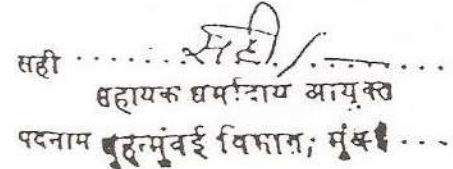 सही ............ सही/- ............
सहायक धर्मादाय आयुक्त
पदनाम बृहन्मुंबई विभाग, मुंबई ...